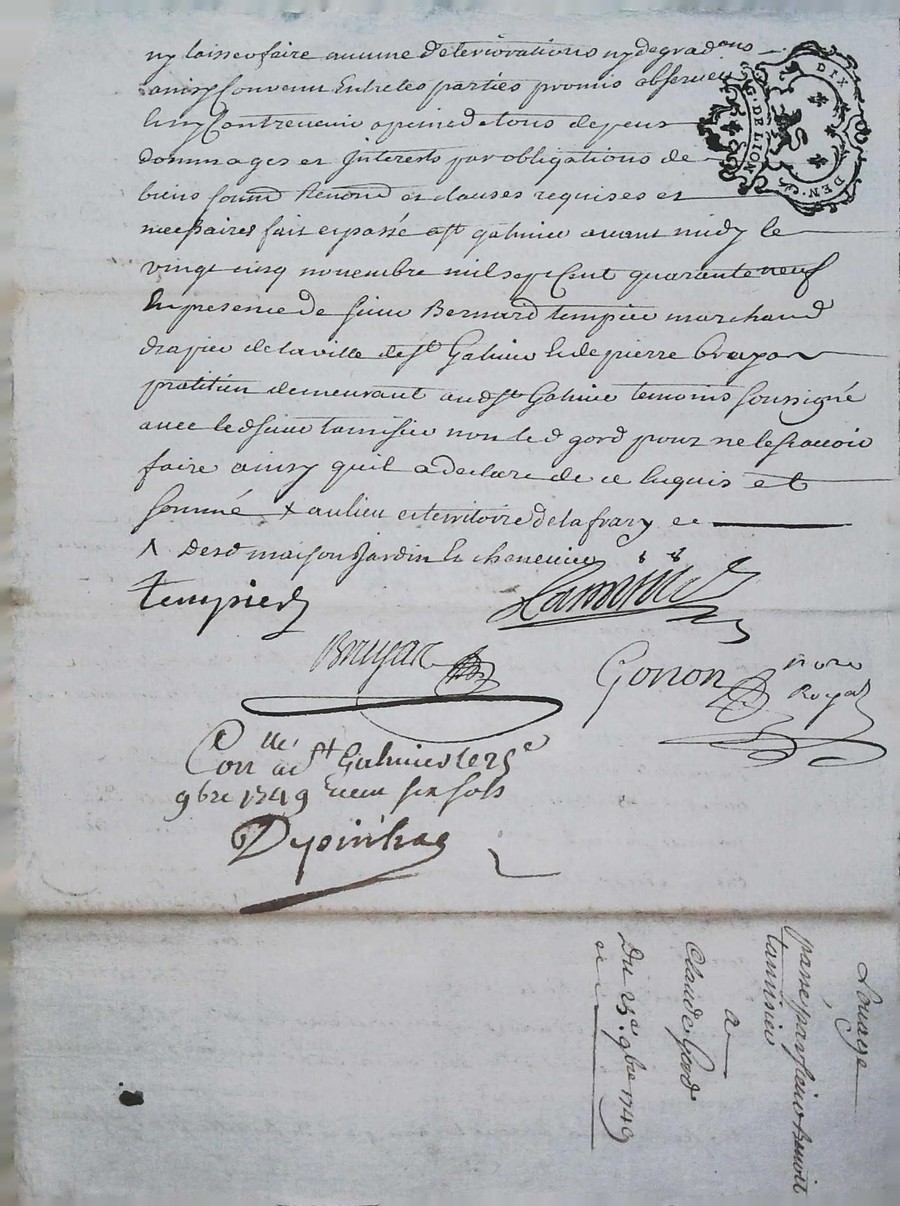 ny laisser faire aucune deteriorations ny degradons
ainsy Convenu Entre les parties promis observer
Contrevenir a peine de tous depens
dommages et Interests par obligations de
biens soumd Renond et clauses requises et
necessaires fait et passé a st galmier avant midy le
vingt cinq novembre mil sept Cent quarante neuf
En presence de sieur Bernard tempier marchand
drapier de la ville de st Galmier & de pierre bruyas
pratitien demeurant aud st Galmier temoins soussigné
avec led sieur tamisier non led gord pour ne le scavoir
faire ainsy quil a declaré de ce Enquis et
sommé x au lieu et territoire de la frary
desd maison Jardin & chenevier
tempier
tamisier
Bruyas
Gonon nore
Royal
Con llé a st Galmier le 25e
9bre 1749 Receu six sols
Dupinhac
G. DE LION
DIX DEN.
Louage
passé par sieur benoit
tamisier
a
Claude Gord
Du 25e 9bre 1749